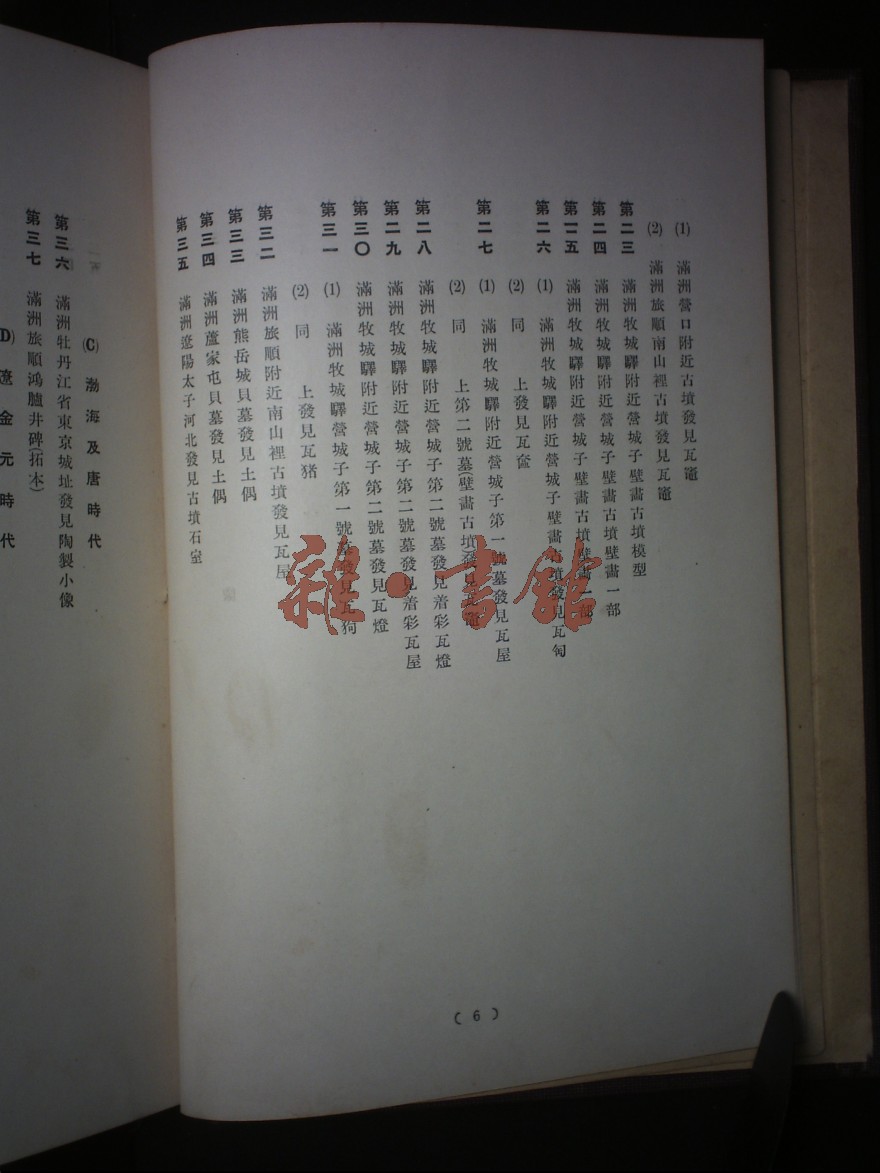 (1) 滿洲營口附近古墳發見瓦竈
(2) 滿洲旅順南山裡古墳發見瓦竈
第二三 滿洲牧城驛附近營城子壁畵古墳模型
第二四 滿洲牧城驛附近營城子壁畵古墳壁畵一部
第二五 滿洲牧城驛附近營城子壁畵古墳壁畵一部
第二六 (1) 滿洲牧城驛附近營城子壁畵古墳發見瓦匋
(2) 同 上發見瓦奩
第二七 (1) 滿洲牧城驛附近營城子第一號墓發見瓦屋
(2) 同 上第二號墓壁畵古墳發見瓦竈
第二八 滿洲牧城驛附近營城子第二號墓發見着彩瓦燈
第二九 滿洲牧城驛附近營城子第二號墓發見着彩瓦屋
第三〇 滿洲牧城驛附近營城子第二號墓發見瓦燈
第三一 (1) 滿洲牧城驛附近營城子第一號墓發見瓦狗
(2) 同 上發見瓦猪
第三二 滿洲旅順附近南山裡古墳發見瓦屋
第三三 滿洲熊岳城貝墓發見土偶
第三四 滿洲蘆家屯貝墓發見土偶
第三五 滿洲遼陽太子河北發見古墳石室
(6)
(C) 渤海及唐時代
第三六 滿洲牡丹江省東京城址發見陶製小像
第三七 滿洲旅順鴻臚井碑(拓本)
(D) 遼金元時代
雜·書館